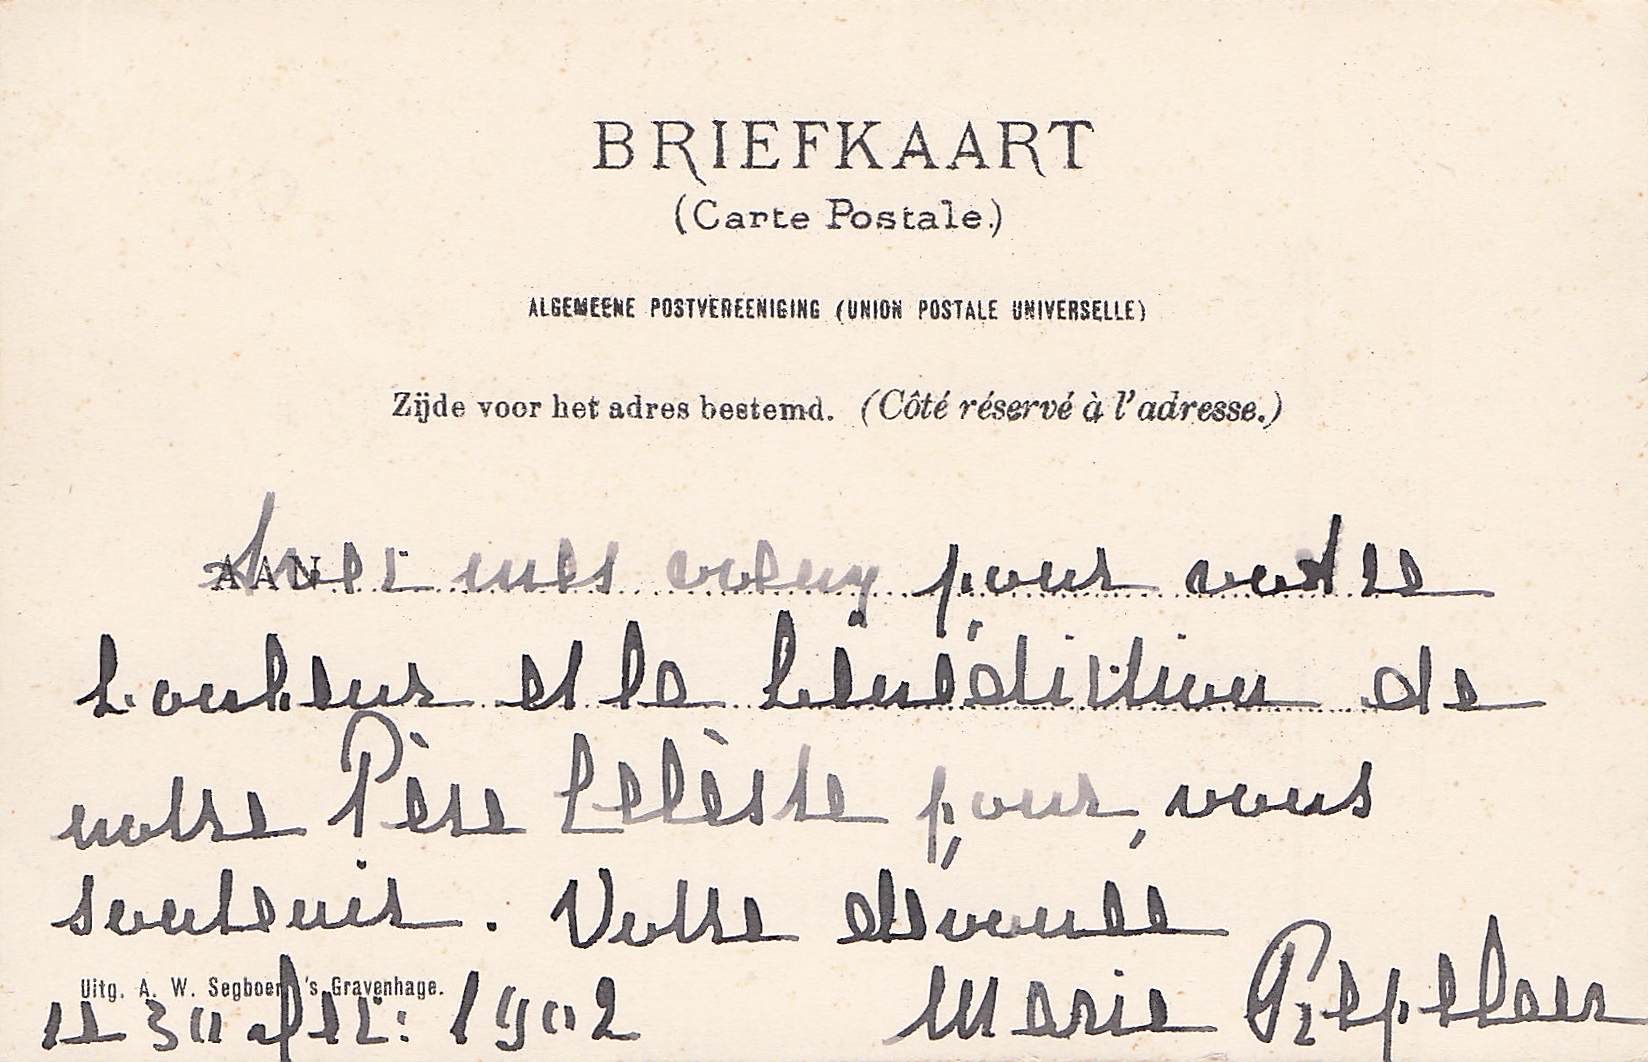 BRIEFKAART
(Carte Postale.)
ALGEMEENE POSTVEREENIGING (UNION POSTALE UNIVERSELLE)
Zijde voor het adres bestemd. (Côté réservé à l'adresse.)
AAN
Avec mes voeux pour votre
bonheur et la bénédiction de
notre Père Celèste pour vous
soutenir. Votre dévouée
Uitg. A. W. Segboer, 's Gravenhage.
le 30 1902 Marie